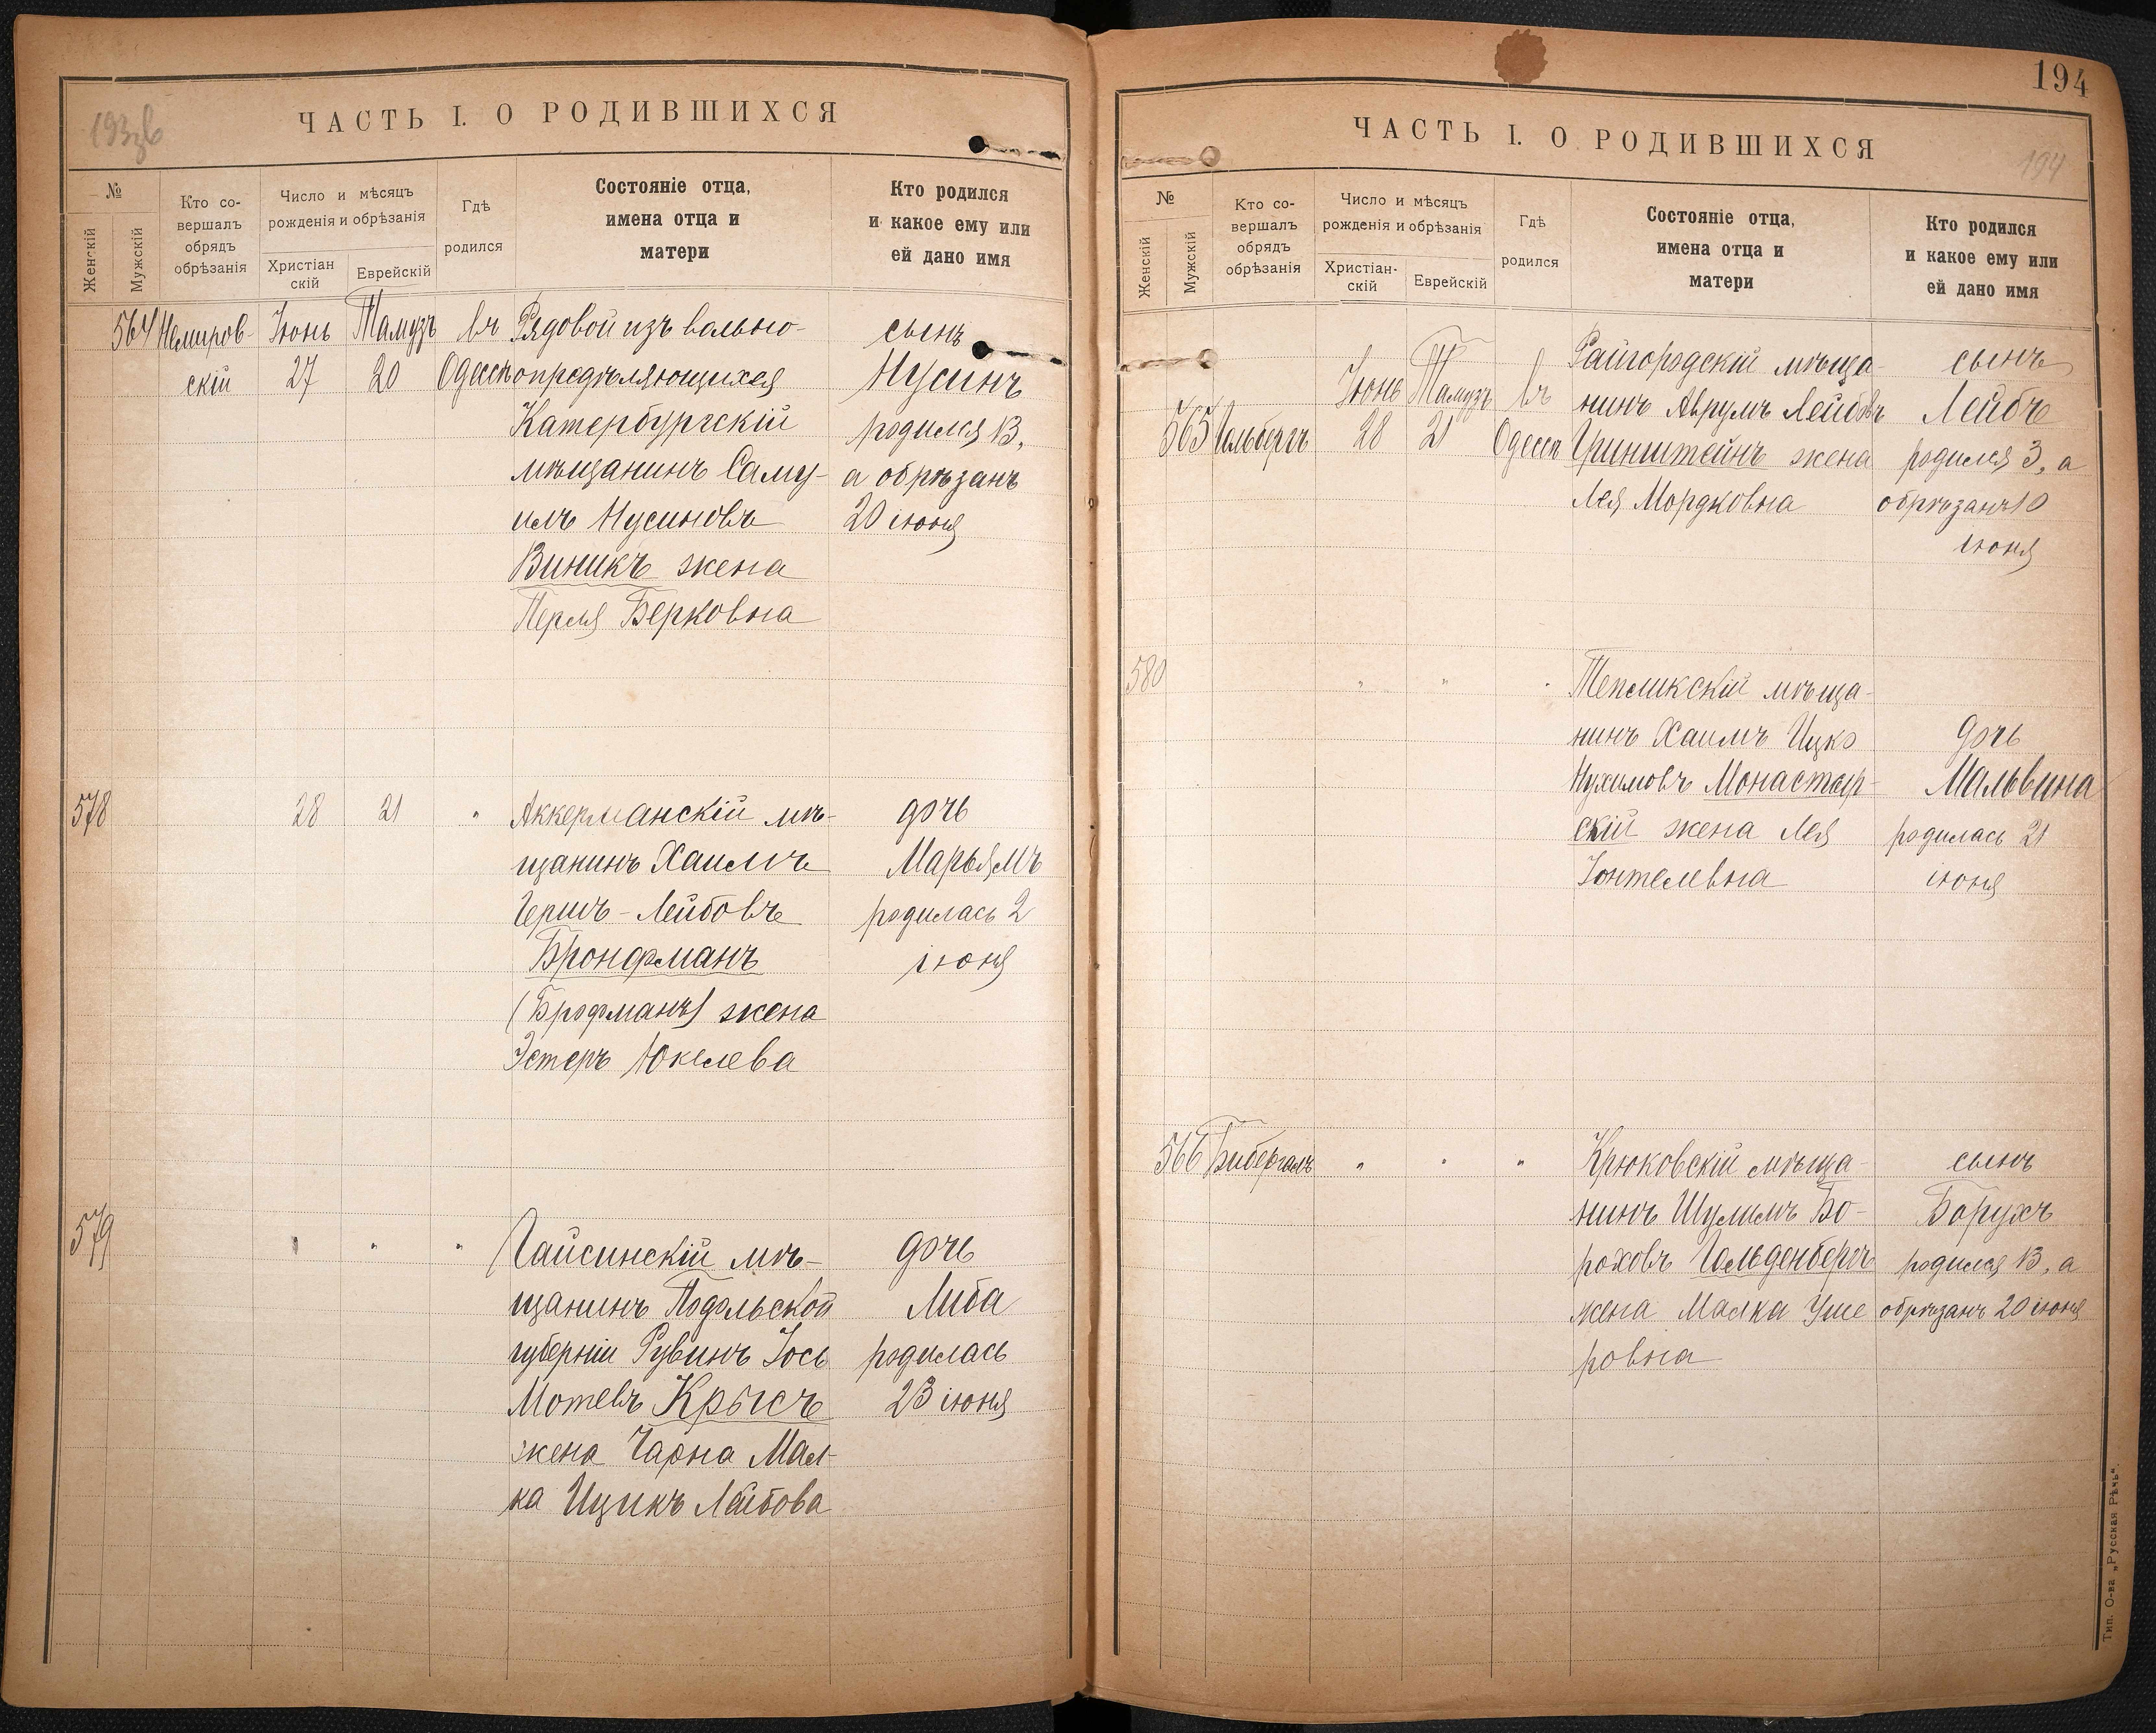 193об
ЧАСТЬ I. О РОДИВШИХСЯ
№
Женскій
Мужскій
Кто со-
вершалъ
обрядъ
обрѣзанія
Число и мѣсяцъ
рожденія и обрѣзанія
Христіан
скій
Еврейскій
Гдѣ
родился
Состояніе отца,
имена отца и
матери
Кто родился
и какое ему или
ей дано имя
564 Немиров- Іюнь Тамузъ въ Рядовой изъ вольно- сынъ
скій 27 20 Одессѣ опредѣляющихся Нусинъ
Катербургскій родился 13,
мѣщанинъ Саму- а обрѣзанъ
илъ Нусиновъ 20 іюня
Виникъ жена
Перля Берковна
578 28 21 " Аккерманскій мѣ- дочь
щанинъ Хаимъ Марьямъ
Гершъ-Лейбовъ родилась 2
Бронфманъ іюня
(Брофманъ) жена
Эстеръ Юкелева
579 " " " Гайсинскій мѣ- дочь
щанинъ Подольской Либа
губерніи Рувинъ Іось родилась
Мотевъ Крысъ 23 іюня
жена Чарна Мал-
ка Ицикъ Лейбова
194
ЧАСТЬ I. О РОДИВШИХСЯ
194
№
Женскій
Мужскій
Кто со-
вершалъ
обрядъ
обрѣзанія
Число и мѣсяцъ
рожденія и обрѣзанія
Христіан-
скій
Еврейскій
Гдѣ
родился
Состояніе отца,
имена отца и
матери
Кто родился
и какое ему или
ей дано имя
Райгородскій мѣща- сынъ
Іюнь Тамузъ въ нинъ Аврумъ Лейбовъ Лейбъ
565 Гольбергъ 28 21 Одессѣ Гринштейнъ жена родился 3, а
Лея Мордковна обрѣзанъ 10
іюня
580 " " " Тепликскій мѣща-
нинъ Хаимъ Ицко дочь
Нухимовъ Монастыр- Мальвина
скій жена Лея родилась 21
Іонтелевна іюня
566 Бибергалъ " " " Крюковскій мѣща- сынъ
нинъ Шулимъ Бо- Борухъ
роховъ Гольденбергъ родился 13, а
жена Малка Уше обрѣзанъ 20 іюня
ровна
Тип. О-ва „Русская Рѣчь“.